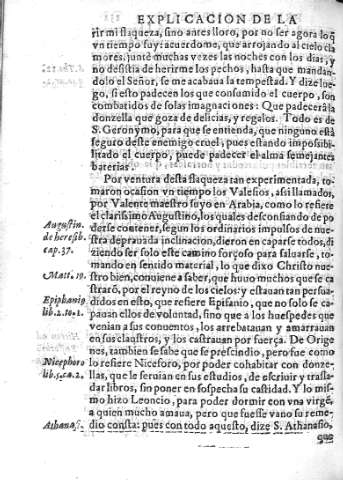 EXPLICACION DE LA
rir mi flaqueza, sino antes lloro, por no ser agora lo q̃
vn tiempo fuy: acuerdome, que arrojando al cielo cla
mores, juntè muchas vezes las noches con los dias, y
no desistia de herirme los pechos, hasta que mandan-
dolo el Señor, se me acabaua la tempestad. Y dize lue-
go, si esto padecen los que consumido el cuerpo, son
combatidos de solas imaginaciones: Que padecerà la
donzella que goza de delicias, y regalos. Todo es de
S. Geronymo, para que se entienda, que ninguno està
seguro deste enemigo cruel, pues estando impossibi-
litado el cuerpo, puede padecer el alma semejantes
baterias.
Por ventura desta flaqueza tan experimentada, to-
maron ocasion vn tiempo los Valesios, assi llamados,
por Valente maestro suyo en Arabia, como lo refiere
Augustin.
de heresib.
cap. 37.
el clarissimo Augustino, los quales desconfiando de po
derse contener, segun los ordinarios impulsos de nues-
tra deprauada inclinacion, dieron en caparse todos, di
ziendo ser solo este camino forçoso para saluarse, to-
mando en sentido material, lo que dixo Christo nues-
Matt. 19.
tro bien, conuiene a saber, que huuo muchos que se ca
straró, por el reyno de los cielos: y estauan tan persua-
Epiphanio
lib. 2. to. 1.
didos en esto, que refiere Epifanio, que no solo se ca-
pauan ellos de voluntad, sino que a los huespedes que
venian a sus conuentos, los arrebatauan y amarrauan
en sus claustros, y los castrauan por fuerça. De Orige
nes, tambien se sabe que se prescindio, pero fue como
Nicephoro
lib. 5. ca. 2.
lo refiere Niceforo, por poder cohabitar con donze-
llas, que le seruian en sus estudios, de escriuir y trasla-
dar libros, sin poner en sospecha su castidad. Y lo mis-
mo hizo Leoncio, para poder dormir con vna virgẽ,
a quien mucho amaua, pero que fuesse vano su reme-
Athanas.
dio consta: pues con todo aquesto, dize S. Athanasio,
que